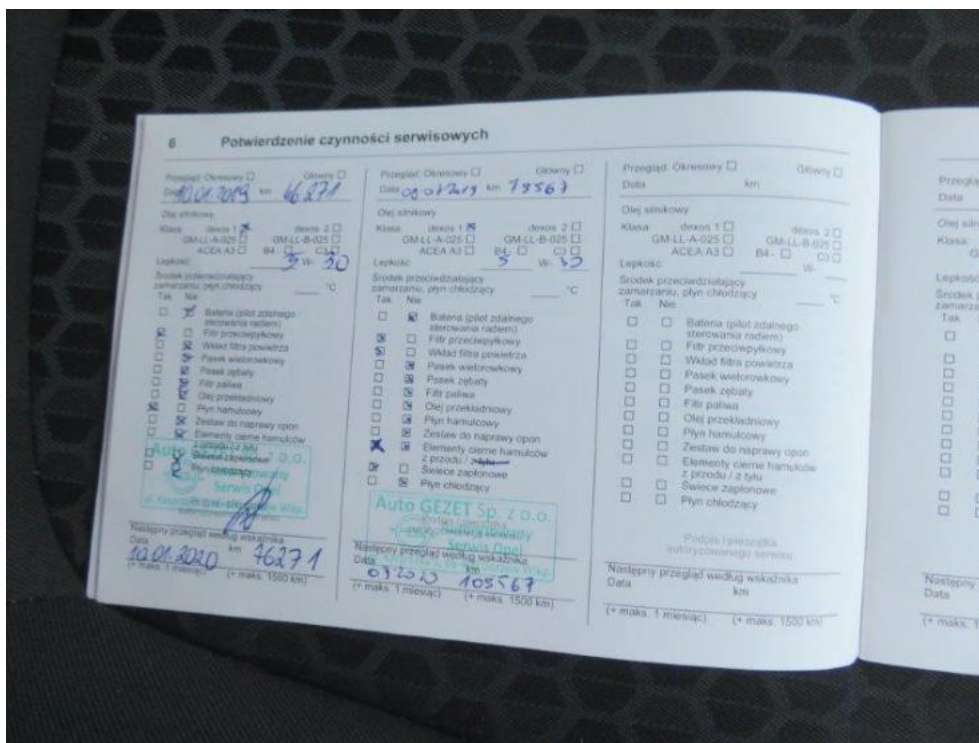 6 Potwierdzenie czynności serwisowych
Przegląd: Okresowy Główny
Data 10.01.2019 km 46271
Olej silnikowy
Klasa dexos 1 dexos 2
GM-LL-A-025 GM-LL-B-025
ACEA A3 B4- C3
Lepkość: 5 W- 30
Środek przeciwdziałający
zamarzaniu, płyn chłodzący °C
Tak Nie
Bateria (pilot zdalnego
sterowania radiem)
Filtr przeciwpyłkowy
Wkład filtra powietrza
Pasek wielorowkowy
Pasek zębaty
Filtr paliwa
Olej przekładniowy
Płyn hamulcowy
Zestaw do naprawy opon
Elementy cierne hamulców
z przodu / z tyłu
Świece zapłonowe
Płyn chłodzący
Serwis Opel
Następny przegląd według wskaźnika
Data km
10.01.2020 76271
(+ maks. 1 miesiąc) (+ maks. 1500 km)
Przegląd: Okresowy Główny
Data km
Olej silnikowy
Klasa dexos 1 dexos 2
GM-LL-A-025 GM-LL-B-025
ACEA A3 B4- C3
Lepkość: 5 W- 30
Środek przeciwdziałający
zamarzaniu, płyn chłodzący °C
Tak Nie
Bateria (pilot zdalnego
sterowania radiem)
Filtr przeciwpyłkowy
Wkład filtra powietrza
Pasek wielorowkowy
Pasek zębaty
Filtr paliwa
Olej przekładniowy
Płyn hamulcowy
Zestaw do naprawy opon
Elementy cierne hamulców
z przodu / z tyłu
Świece zapłonowe
Płyn chłodzący
Auto GEZET Sp. z o.o.
Serwis Opel
Następny przegląd według wskaźnika
Data km
105567
(+ maks. 1 miesiąc) (+ maks. 1500 km)
Przegląd: Okresowy Główny
Data km
Olej silnikowy
Klasa dexos 1 dexos 2
GM-LL-A-025 GM-LL-B-025
ACEA A3 B4- C3
Lepkość: W-
Środek przeciwdziałający
zamarzaniu, płyn chłodzący °C
Tak Nie
Bateria (pilot zdalnego
sterowania radiem)
Filtr przeciwpyłkowy
Wkład filtra powietrza
Pasek wielorowkowy
Pasek zębaty
Filtr paliwa
Olej przekładniowy
Płyn hamulcowy
Zestaw do naprawy opon
Elementy cierne hamulców
z przodu / z tyłu
Świece zapłonowe
Płyn chłodzący
Podpis i pieczątka
autoryzowanego serwisu
Następny przegląd według wskaźnika
Data km
(+ maks. 1 miesiąc) (+ maks. 1500 km)
Data
Klasa:
Lepkość
Tak
Następny
Data
(+ maks. 1